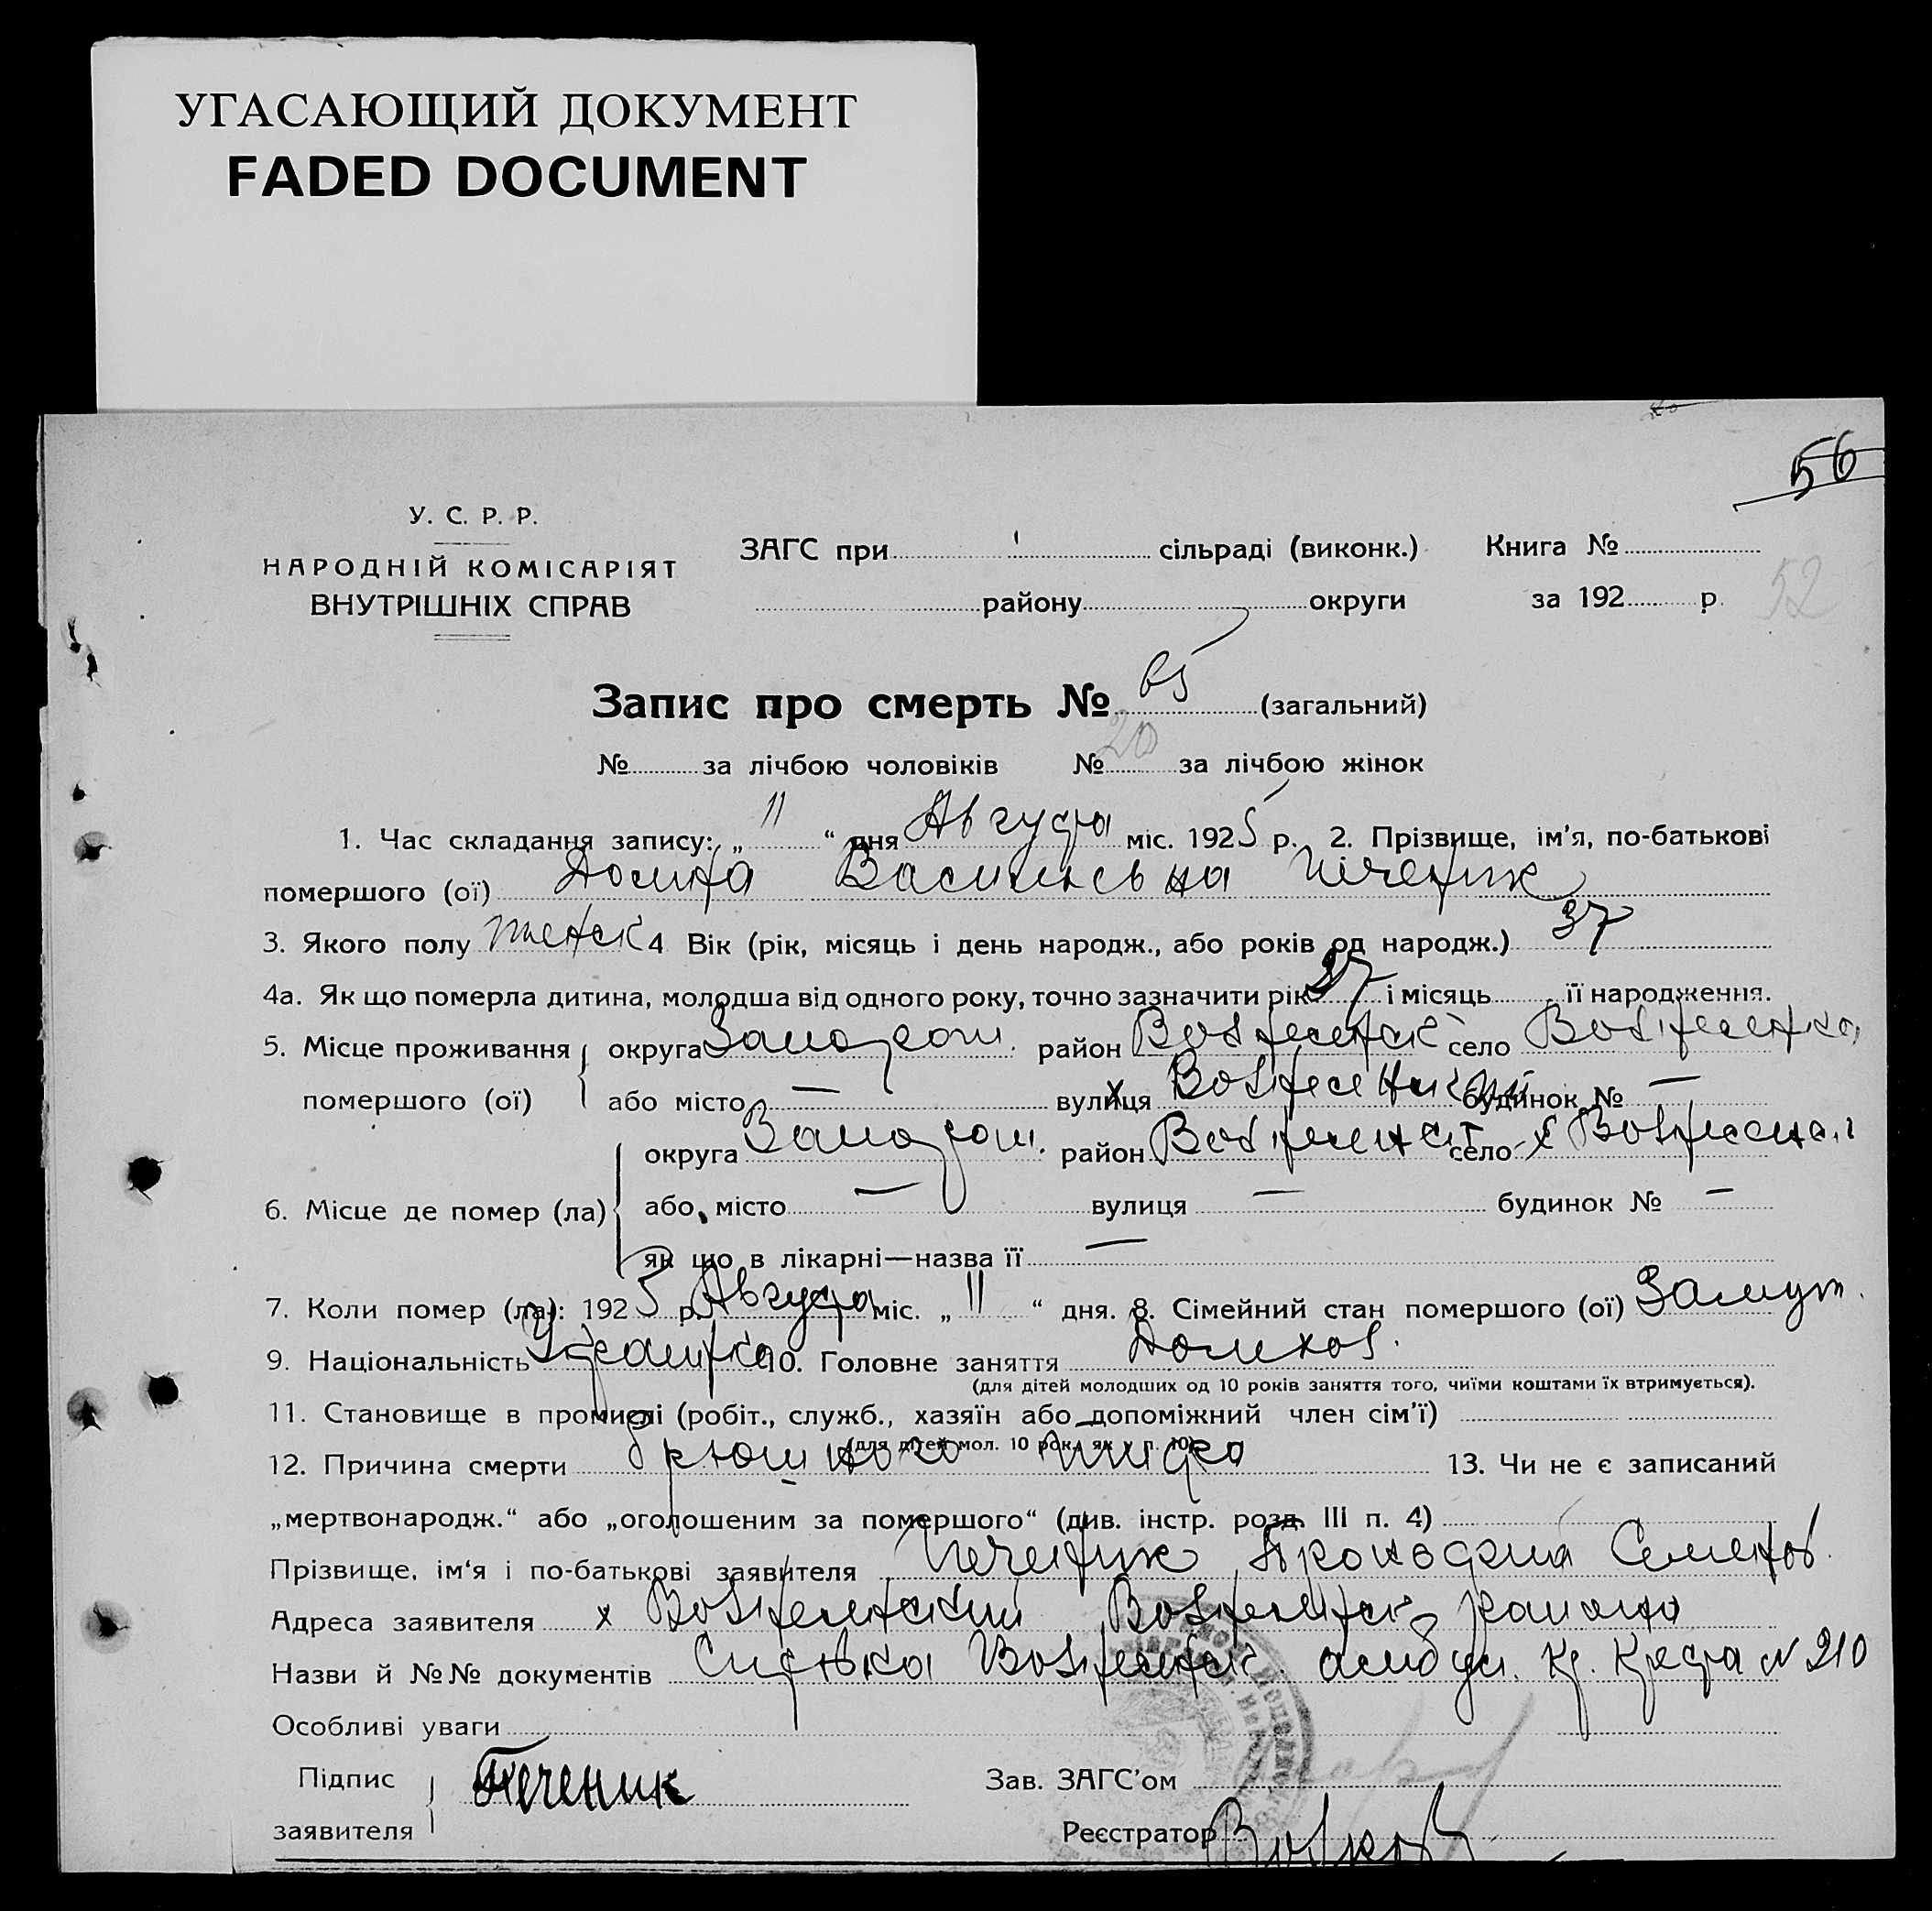 УГАСАЮЩИЙ ДОКУМЕНТ
FADED DOCUMENT
56
У. С. Р. Р.
НАРОДНІЙ КОМІСАРІЯТ
ВНУТРІШНІХ СПРАВ
ЗАГС при сільраді (виконк.) Книга №
району округи за 192 р.
52
Запис про смерть № 65 (загальний)
№ за лічбою чоловіків № 20 за лічбою жінок
1. Час складання запису: „ 11 “ дня Августа міс. 1925 р. 2. Прізвище, ім'я, по-батькові
помершого (ої) Домна Васильевна Печеник
3. Якого полу женск 4 Вік (рік, місяць і день народж., або років од народж.) 37
4а. Як що померла дитина, молодша від одного року, точно зазначити рік 37 і місяць її народження.
5. Місце проживання округа Запорож. район Вознесенск село Вознесенка
помершого (ої) або місто — вулиця х Вознесенский будинок № —
округа Запорож. район Вознесенск село х Вознесен
6. Місце де помер (ла) або місто — вулиця — будинок № —
як що в лікарні—назва її —
7. Коли помер (ла): 1925 р. Августа міс. „ 11 “ дня. 8. Сімейний стан помершого (ої) Замуж.
9. Національність Украинка 10. Головне заняття Домхоз.
(для дітей молодших од 10 років заняття того, чиїми коштами їх втримується).
11. Становище в промислі (робіт., служб., хазяїн або допоміжний член сім'ї)
(для дітей мол. 10 рок. як у п. 10)
12. Причина смерти брюшного тифа 13. Чи не є записаний
„мертвонародж.“ або „оголошеним за помершого“ (див. інстр. розд. III п. 4)
Прізвище, ім'я і по-батькові заявителя Печеник Семенов
Адреса заявителя х Вознесенский Вознесенск района
Назви й №№ документів Справка Вознесенск. амбул. Кр. Креста № 210
Особливі уваги
Підпис Печеник Зав. ЗАГС'ом
заявителя Реєстратор Волков